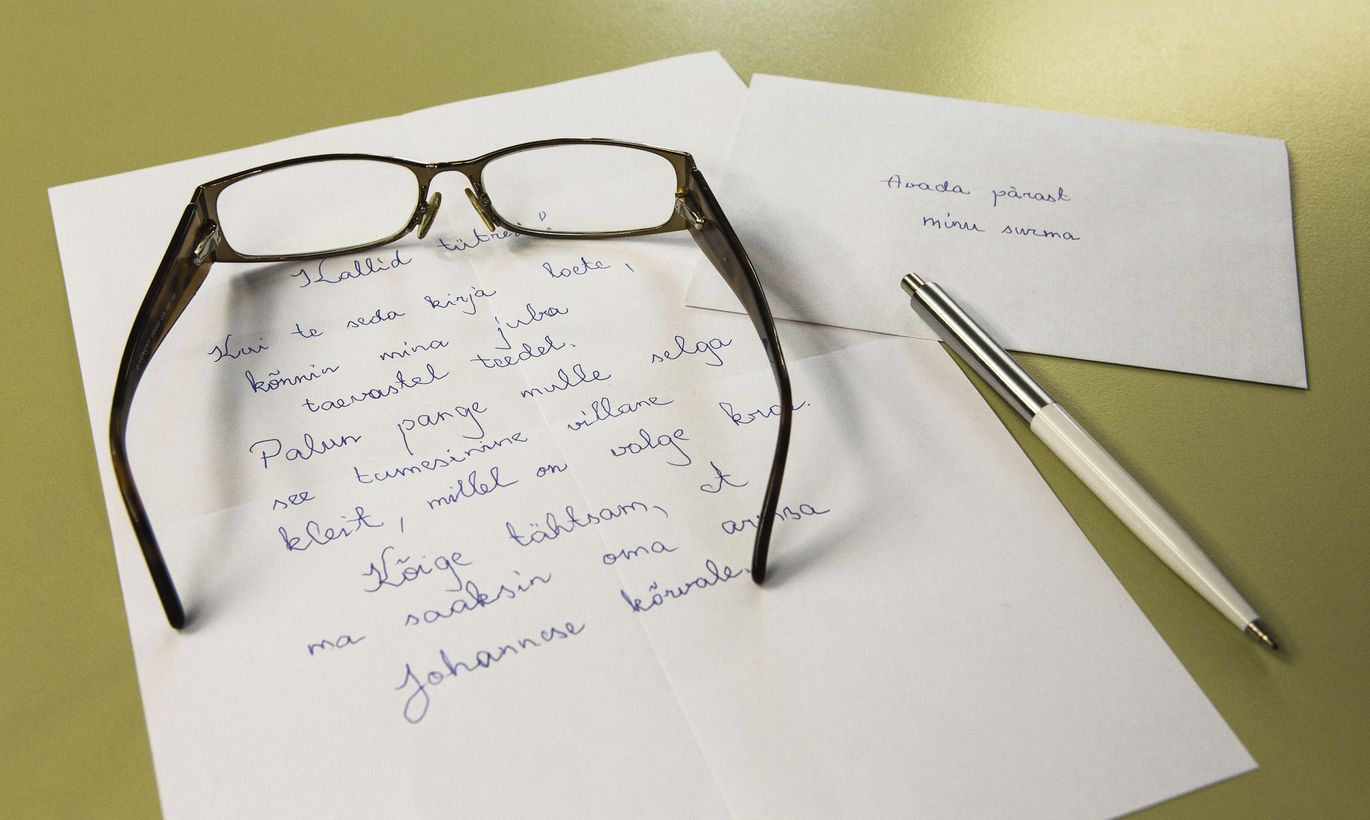 Kallid tütred!
Kui te seda kirja loete,
kõnnin mina juba
taevastel teedel.
Palun pange mulle selga
see tumesinine villane
kleit, millel on valge krae.
Kõige tähtsam, et
ma saaksin oma armsa
Johannese kõrvale.
Avada pärast
minu surma